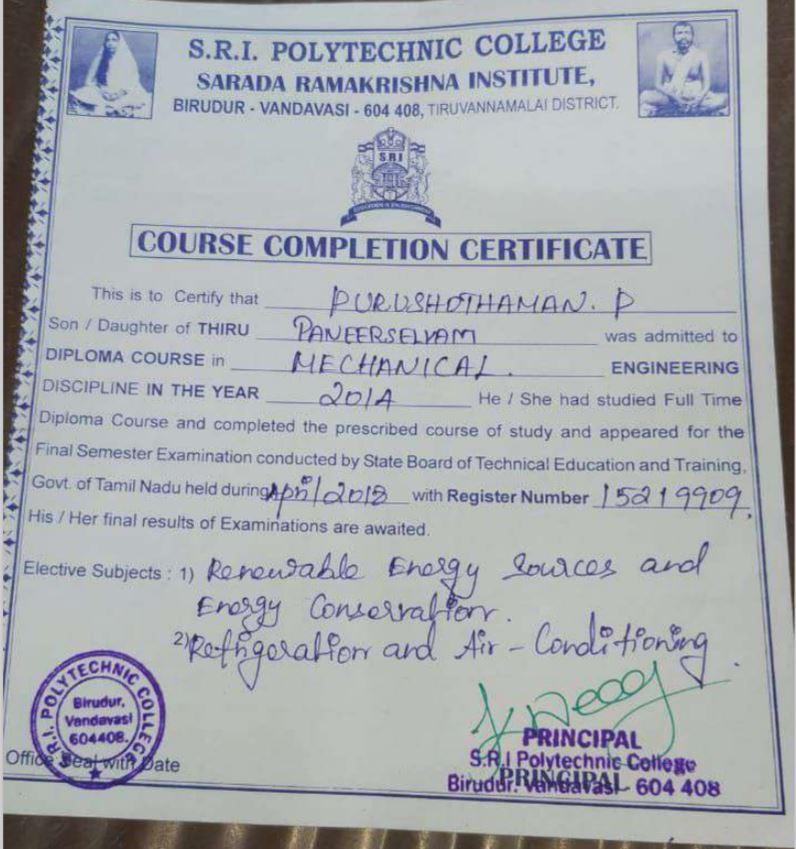 S.R.I. POLYTECHNIC COLLEGE
SARADA RAMAKRISHNA INSTITUTE,
BIRUDUR - VANDAVASI - 604 408, TIRUVANNAMALAI DISTRICT.
SRI
COURSE COMPLETION CERTIFICATE
This is to Certify that PURUSHOTHAMAN. P
Son / Daughter of THIRU PANEERSELVAM was admitted to
DIPLOMA COURSE in MECHANICAL. ENGINEERING
DISCIPLINE IN THE YEAR 2014 He / She had studied Full Time
Diploma Course and completed the prescribed course of study and appeared for the
Final Semester Examination conducted by State Board of Technical Education and Training,
Govt. of Tamil Nadu held during April/2018 with Register Number 15219909.
His / Her final results of Examinations are awaited.
Elective Subjects : 1) Renewable Energy Sources and
Energy Conservation.
2) Refrigeration and Air - Conditioning.
S.R.I. POLYTECHNIC COLLEGE
Birudur,
Vandavasi
604408.
Office Seal with Date
PRINCIPAL
S.R.I Polytechnic College
Birudur. Vandavasi - 604 408
PRINCIPAL